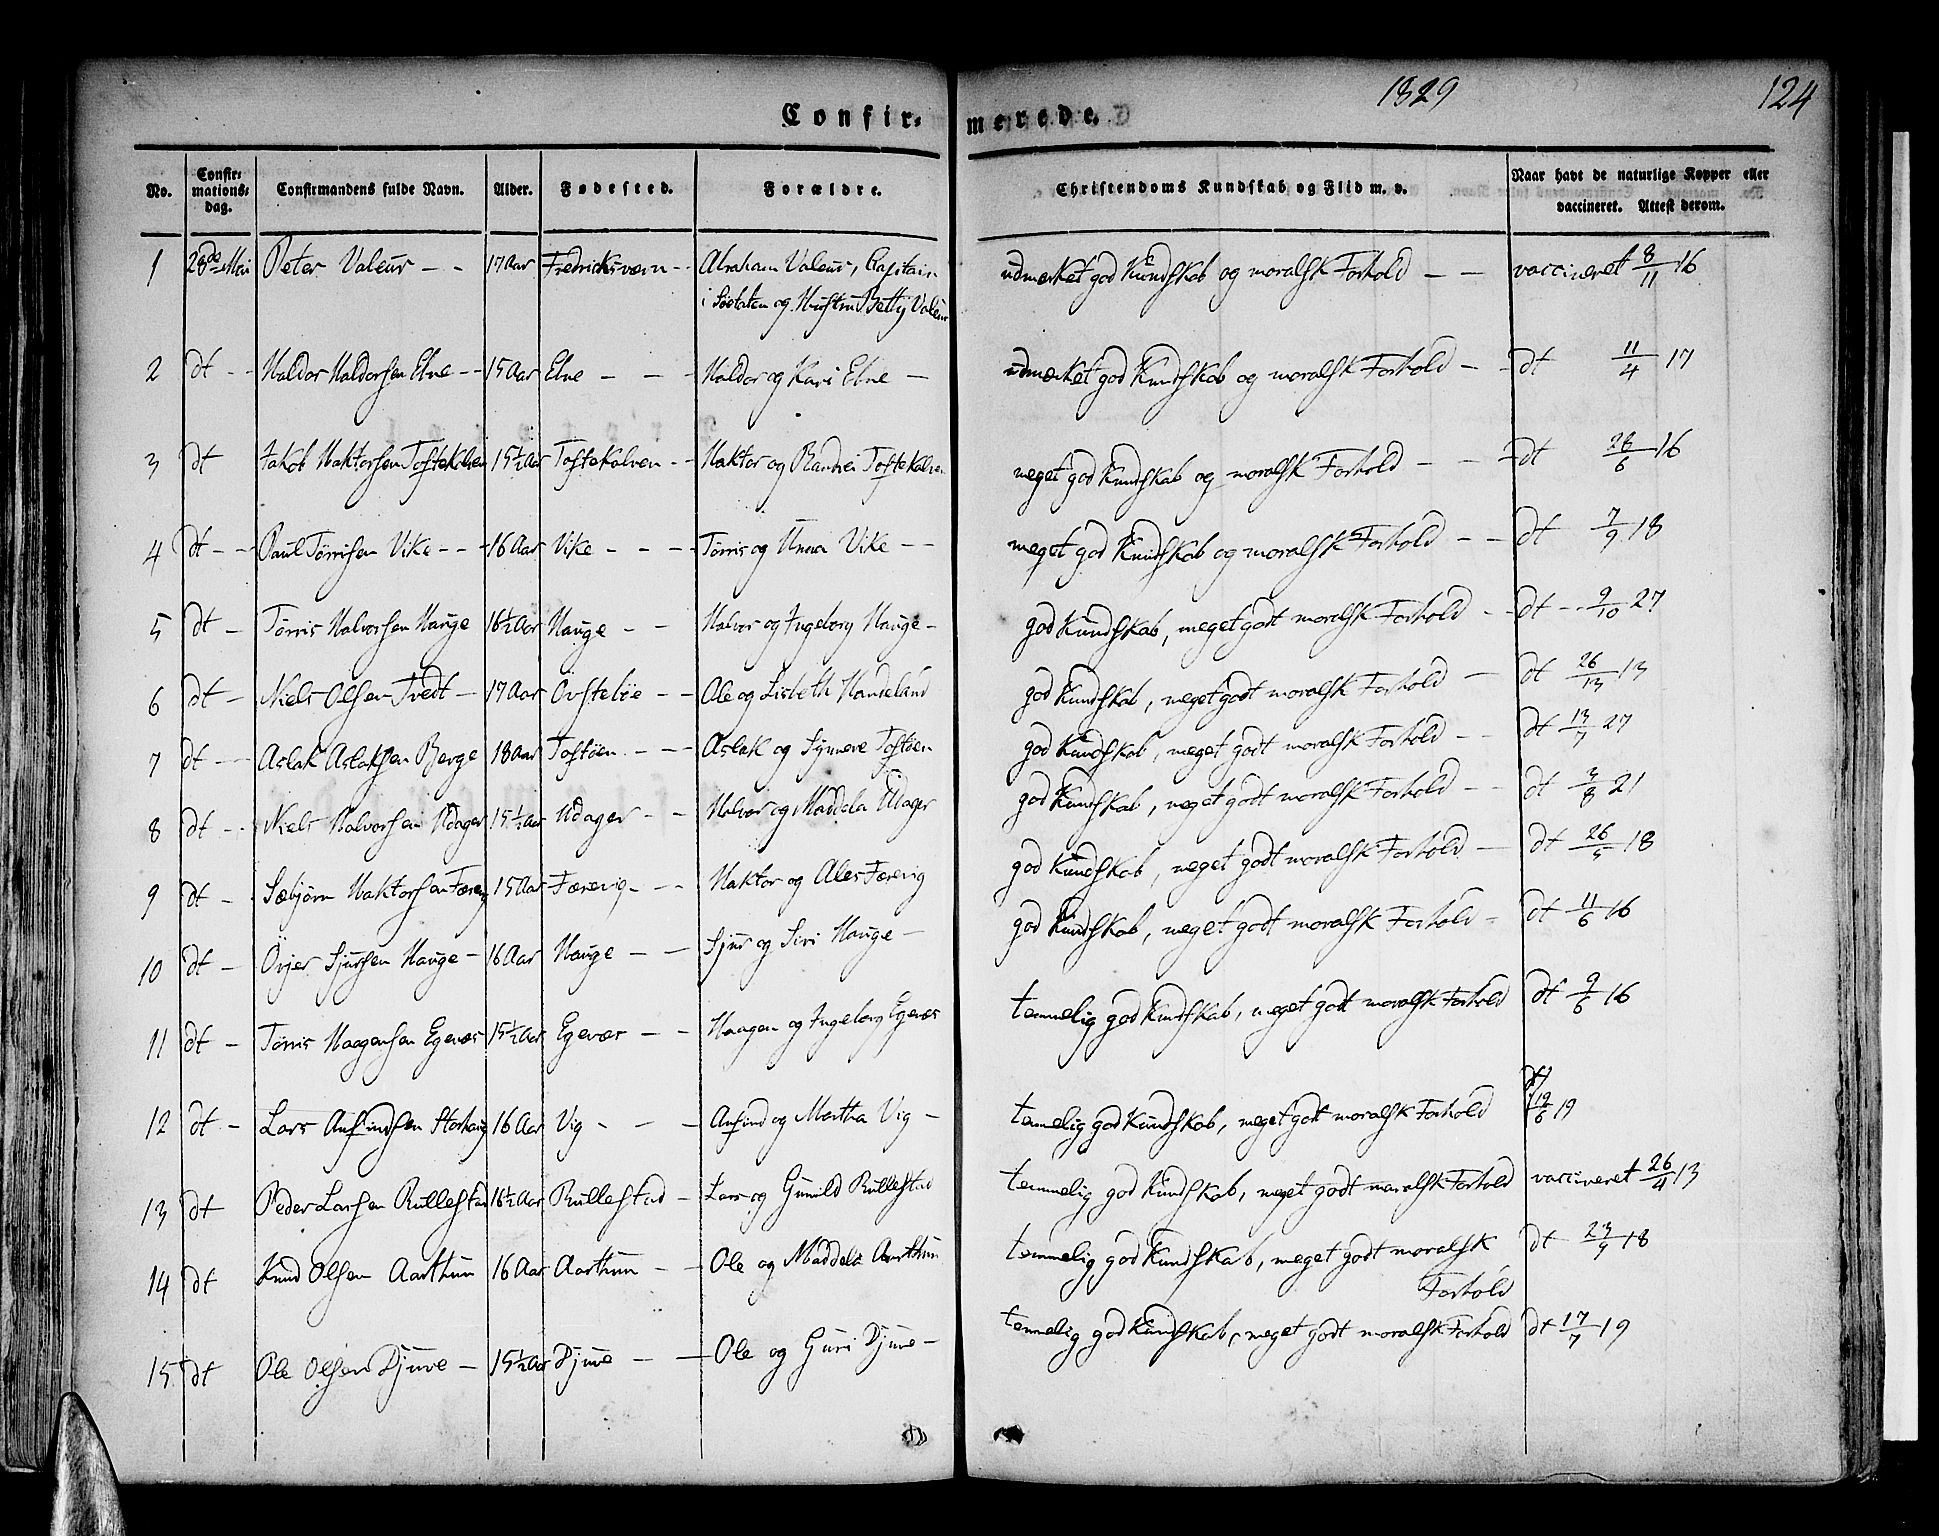 1829
124
Confir- merede.
No.
Confir-
mations-
dag.
Confirmandens fulde Navn.
Alder.
Fødested.
Forældre.
Christendoms Kundskab og Flid m. v.
Naar havt de naturlige Kopper eller
vaccineret. Attest derom.
1 28de Mai Peter Valeur - - 17 Aar Fredricksværn - - Abraham Valeur, Capitain udmærket god Kundskab og moralsk Forhold - - vaccineret 8/11 16
i Søetaten og Hustru Betty Valeur
2 dt - - Haldor Haldorsen Ebne - - 15 Aar Ebne - - - Haldor og Kari Ebne - udmærket god Kundskab og moralsk Forhold - - dt 11/4 17
3 dt Jakob Haktorsen Toftekalven 15½ Aar Toftekalven - - Haktor og Randvei Toftekalven meget god Kundskab og moralsk Forhold - - - dt 28/6 16
4 dt - - Paul Tørrisen Vike - - - 16 Aar Vike - - - - Tørris og Unna Vike - - meget god Kundskab og moralsk Forhold - - dt 7/9 18
5 dt - Tørris Halvorsen Hauge 16½ Aar Hauge - - Halvor og Ingeborg Hauge - god Kundskab, meget godt moralsk Forhold - - dt - 9/10 27
6 dt - Niels Olsen Tvedt - 17 Aar Øvstebøe - - Ole og Lisbeth Handeland god Kundskab, meget godt moralsk Forhold - dt 26/13 13
7 dt - - Aslak Aslaksen Berge 18 Aar Toftøen - - - Aslak og Synneve Toftøen god Kundskab, meget godt moralsk Forhold - - dt 13/7 27
8 dt - - Niels Halvorsen Udager 15½ Aar Udager - - Halvor og Maddela Udager god Kundskab, meget godt moralsk Forhold - - dt 3/8 21
9 dt - Sæbjørn Haktorsen Færevig 15 Aar Færevig - - - Haktor og Ales Færevig god Kundskab, meget godt moralsk Forhold - dt 26/5 18
10 dt - Øvjer Sjursen Hauge - 16 Aar Hauge - - Sjur og Siri Hauge - god Kundskab, meget godt moralsk Forhold - dt 11/6 16
11 dt - Tørris Haagensen Egenæs 15½ Aar Egenæs - - Haagen og Ingeborg Egenæs temmelig god Kundskab, meget godt moralsk Forhold dt 9/6 16
12 dt - Lars Anfindsen Storhaug 16 Aar Vig - - - Anfind og Martha Vig - temmelig god Kundskab, meget godt moralsk Forhold dt 19/6 19
13 dt Peder Larsen Rullestad 16½ Aar Rullestad - Lars og Gunild Rullestad temmelig god Kundskab, meget godt moralsk Forhold vaccineret 26/4 13
14 dt Knud Olsen Aarthun 16 Aar Aarthun - - Ole og Maddela Aarthun temmelig god Kundskab, meget godt moralsk dt 23/9 18
Forhold
15 dt Ole Olsen Djuve - 15½ Aar Djuve - - Ole og Guri Djuve - temmelig god Kundskab, meget godt moralsk Forhold dt 17/7 19